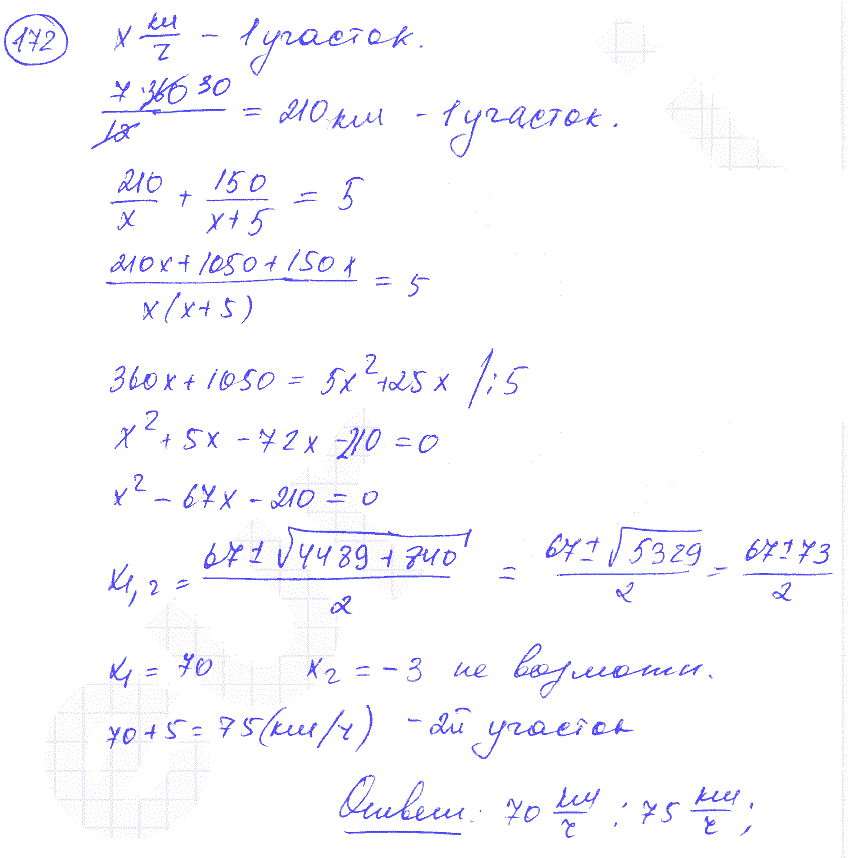 172 x км/ч – 1 участок.
7·360 30 / 12 = 210 км – 1 участок.
210/x + 150/(x+5) = 5
(210x+1050+150x)/(x(x+5)) = 5
360x+1050 = 5x²+25x /:5
x²+5x–72x–210=0
x²–67x–210=0
x1,2 = (67±√(4489+840))/2 = (67±√5329)/2 = (67±73)/2
x1=70 x2=–3 не возможн.
70+5=75(км/ч) –2й участок
Ответ: 70 км/ч; 75 км/ч;